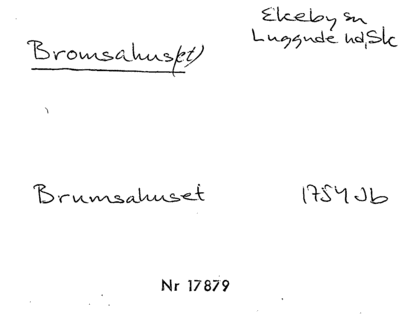 Ekeby sn
Bromsahus(et) Luggude hd, Sk
Brumsahuset 1754 Jb
Nr 17879